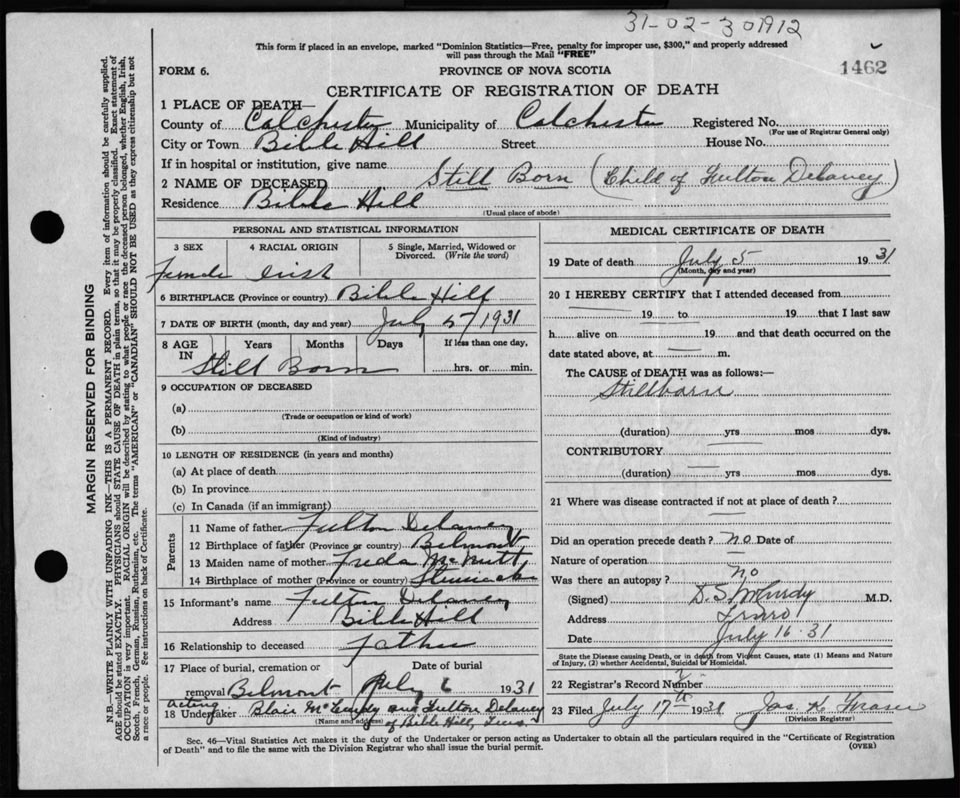 31-02-301912
This form if placed in an envelope, marked "Dominion Statistics—Free, penalty for improper use, $300," and properly addressed
will pass through the Mail "FREE"
FORM 6.
PROVINCE OF NOVA SCOTIA
1462
CERTIFICATE OF REGISTRATION OF DEATH
1 PLACE OF DEATH—
County of Colchester Municipality of Colchester Registered No.
(For use of Registrar General only)
City or Town Bible Hill Street House No.
If in hospital or institution, give name
2 NAME OF DECEASED Still Born (Child of Fulton Delaney)
Residence Bible Hill
(Usual place of abode)
PERSONAL AND STATISTICAL INFORMATION
3 SEX 4 RACIAL ORIGIN 5 Single, Married, Widowed or Divorced. (Write the word)
Female Irish
6 BIRTHPLACE (Province or country) Bible Hill
7 DATE OF BIRTH (month, day and year) July 5/1931
8 AGE IN Years Months Days If less than one day,
Still Born hrs. or min.
9 OCCUPATION OF DECEASED
(a)
(Trade or occupation or kind of work)
(b)
(Kind of industry)
10 LENGTH OF RESIDENCE (in years and months)
(a) At place of death
(b) In province
(c) In Canada (if an immigrant)
Parents
11 Name of father Fulton Delaney
12 Birthplace of father (Province or country) Belmont
13 Maiden name of mother Freda McNutt
14 Birthplace of mother (Province or country)
15 Informant's name Fulton Delaney
Address Bible Hill
16 Relationship to deceased Father
17 Place of burial, cremation or Date of burial
removal Belmont July 6 1931
acting
18 Undertaker Blair and Fulton Delaney
(Name and address) of Bible Hill,
MEDICAL CERTIFICATE OF DEATH
19 Date of death July 5 1931
(Month, day and year)
20 I HEREBY CERTIFY that I attended deceased from
19 to 19 that I last saw
h alive on 19 and that death occurred on the
date stated above, at m.
The CAUSE of DEATH was as follows:—
Stillborn
(duration) yrs mos dys.
CONTRIBUTORY
(duration) yrs mos dys.
21 Where was disease contracted if not at place of death?
Did an operation precede death? no Date of
Nature of operation
Was there an autopsy? no
(Signed) D.S. M.D.
Address Truro
Date July 16-31
State the Disease causing Death, or in death from Violent Causes, state (1) Means and Nature
of Injury, (2) whether Accidental, Suicidal or Homicidal.
22 Registrar's Record Number
23 Filed July 17th 1931 Jas. K. Fraser
(Division Registrar)
Sec. 46—Vital Statistics Act makes it the duty of the Undertaker or person acting as Undertaker to obtain all the particulars required in the "Certificate of Registration
of Death" and to file the same with the Division Registrar who shall issue the burial permit.
(OVER)
MARGIN RESERVED FOR BINDING
N.B.—WRITE PLAINLY WITH UNFADING INK—THIS IS A PERMANENT RECORD. Every item of information should be carefully supplied.
AGE should be stated EXACTLY. PHYSICIANS should STATE CAUSE OF DEATH in plain terms, so that it may be properly classified. Exact statement of
OCCUPATION is very important. RACIAL ORIGIN will be described by stating to what people or race the deceased person belonged, whether English, Irish,
Scotch, French, German, Russian, Ruthenian, etc. The terms "AMERICAN" or "CANADIAN" SHOULD NOT BE USED as they express citizenship but not
a race or people. Fee instructions on back of Certificate.